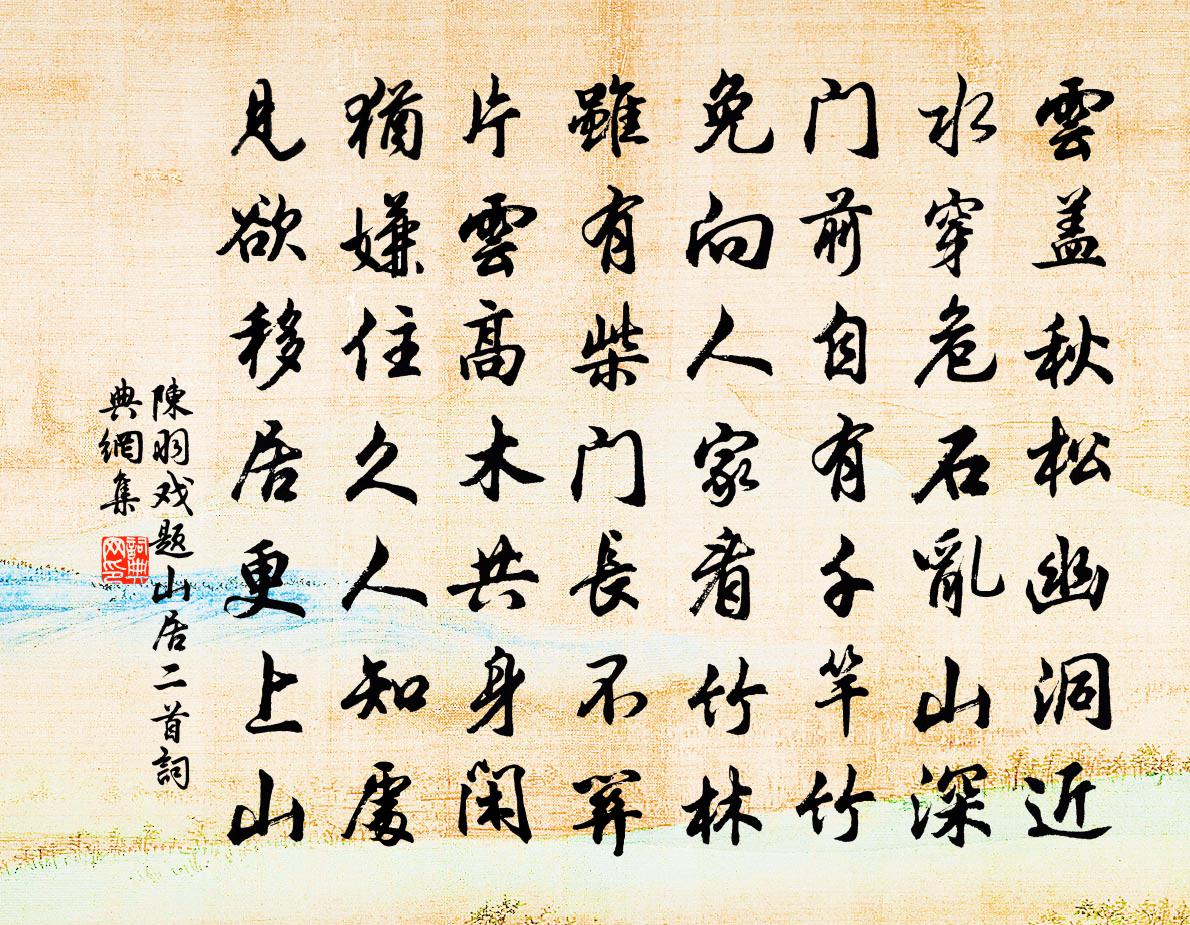 雲盖秋松幽洞近
水穿危石亂山深
门前自有千竿竹
免向人家看竹林
雖有柴门長不關
片雲高木共身闲
猶嫌住久人知處
見欲移居更上山
陳羽戏题山居二首詞
典網集
詞典
网印